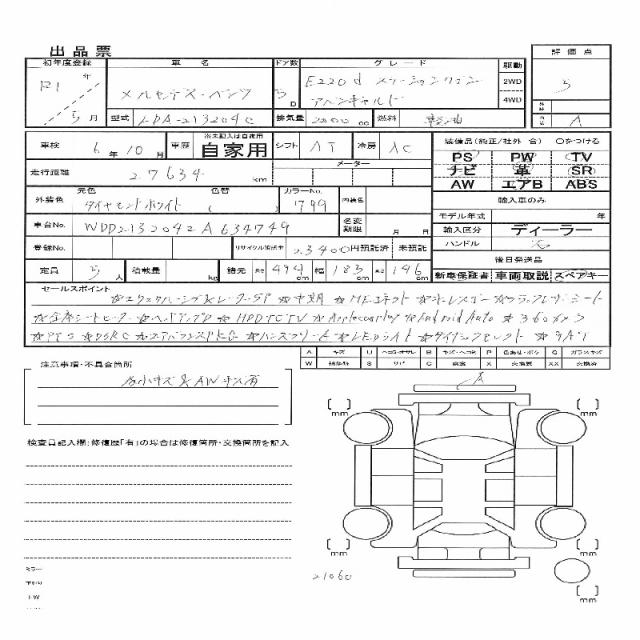 出品票
初年度登録 車名 ドア数 グレード 駆動 評価点
R1 年 メルセデス・ベンツ 5 D E220d ステーションワゴン 2WD 5
5 月 アバンギャルド 4WD
型式 LDA-213204C 排気量 2000 cc 燃料 軽油 A
車検 6 年 10 月 車歴 ※未記入は自家用 自家用 シフト AT 冷房 AC
装備品(純正/社外 合) ○をつける
PS PW TV
走行距離 27634 km メーター
ナビ 革 SR
AW エアB ABS
元色 色替 カラーNo.
外装色 ダイヤモンドホワイト ( 1799 内装色
輸入車のみ
モデル年式 年
車台No. WDD2132042A634749 名変期限 月 日
輸入区分 ディーラー
登録No. リサイクル預託金 円 預託済 未預託
ハンドル
後日発送品
定員 5 人 積載量 kg 諸元 長さ 494 cm 幅 183 cm 高さ 146 cm
新車保証書 車両取説 スペアキー
セールスポイント
☆エクスクルーシブ ☆レーダーSP
☆全席シートヒーター ☆ヘッドアップD ☆HDDTCTV ☆Applecarplay ☆Android Auto ☆360カメラ
☆PTS ☆DSRC ☆ハンズフリー ☆LEDライト ☆9AT
A キズ U ヘコミ・オサレ B キズ・ヘコミ P 色あり・ボケ G ガラスキズ
S サビ C 腐食 X 交換要 XX 交換済
注意事項・不具合箇所
A
各小キズ & AWキズ有
検査員記入欄:修復歴「有」の場合は修復箇所・交換箇所を記入
mm mm
mm mm
mm
21060